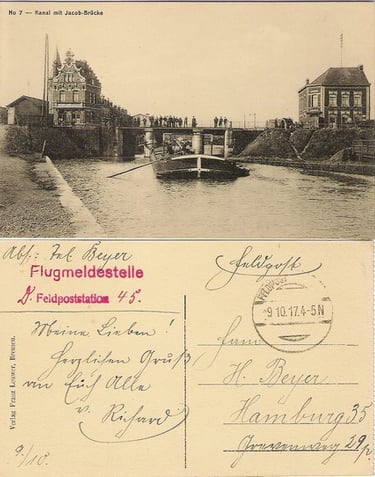 No 7 — Kanal mit Jacob-Brücke
Abs: Tel. Beyer
Flugmeldestelle
D. Feldpoststation 45.
Meine Lieben!
Herzlichen Gruß
an Euch Alle
v. Richard
9./10.
Verlag Franz Leuwer, Bremen.
Feldpost
FELDPOST
9.10.17.4-5N
H. Beyer
Hamburg 35
29 p.